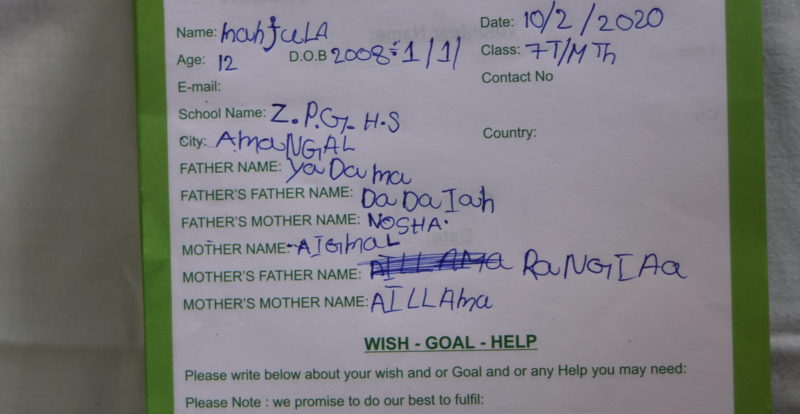 Name: manjuLA Date: 10/2/2020
Age: 12 D.O.B 2008:1/1/ Class: 7T/MTh
E-mail: Contact No
School Name: Z.P.G.H.S
City: AmaNGAL Country:
FATHER NAME: YaDama
FATHER'S FATHER NAME: DaDaIah
FATHER'S MOTHER NAME: NOSHA.
MOTHER NAME: AIGmaL
MOTHER'S FATHER NAME: RaNGIAa
MOTHER'S MOTHER NAME: AILLAma
WISH - GOAL - HELP
Please write below about your wish and or Goal and or any Help you may need:
Please Note : we promise to do our best to fulfil: